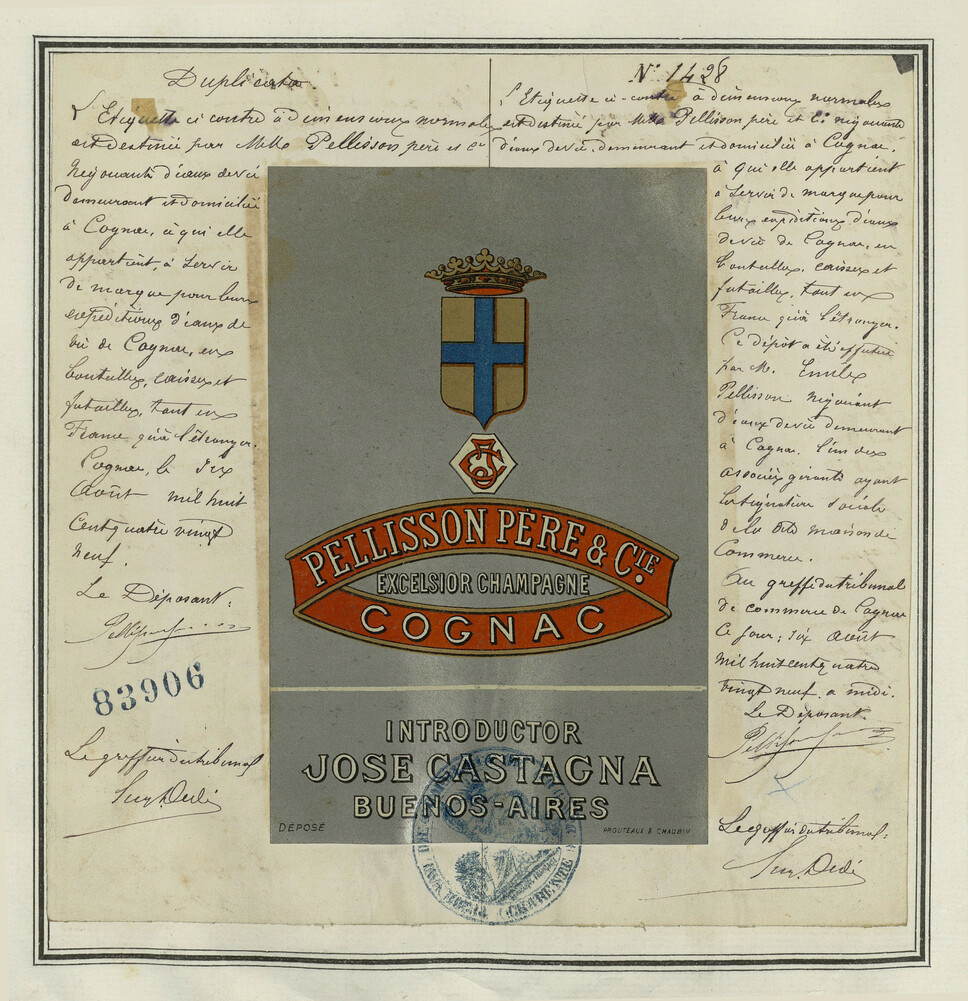 Duplicata.
L'Etiquette ci contre à dimensions normales
est destinée par Mrs Pellisson père et Cie
Négociants d'eaux de vie
demeurant et domiciliés
à Cognac, à qui elle
appartient, à servir
de marque pour leurs
expéditions d'eaux de
vie de Cognac, en
bouteilles, caisses et
futailles, tant en
France qu'à l'étranger.
Cognac, le dix
Août mil huit
cent quatre vingt
neuf.
Le Déposant:
Pellisson
83906
Le greffier du tribunal
N° 1428
L'Etiquette ci-contre à dimensions normales
est destinée par Mrs Pellisson père et Cie négociants
d'eaux de vie, demeurant et domiciliés à Cognac,
à qui elle appartient
à servir de marque pour
leurs expéditions d'eaux
de vie de Cognac, en
bouteilles, caisses et
futailles, tant en
France qu'à l'étranger.
Ce dépôt a été effectué
par M. Emile
Pellisson négociant
d'eaux de vie demeurant
à Cognac. l'un des
associés gérants ayant
la signature sociale
de la dite maison de
Commerce.
Au greffe du tribunal
de commerce de Cognac
Ce jour, dix Août
mil huit cent quatre
vingt neuf. à midi.
Le Déposant.
Pellisson
Le greffier du tribunal:
PELLISSON PÈRE & CIE.
EXCELSIOR CHAMPAGNE
COGNAC
INTRODUCTOR
JOSE CASTAGNA
BUENOS-AIRES
DÉPOSÉ
PROUTEAUX & CHAUBIN